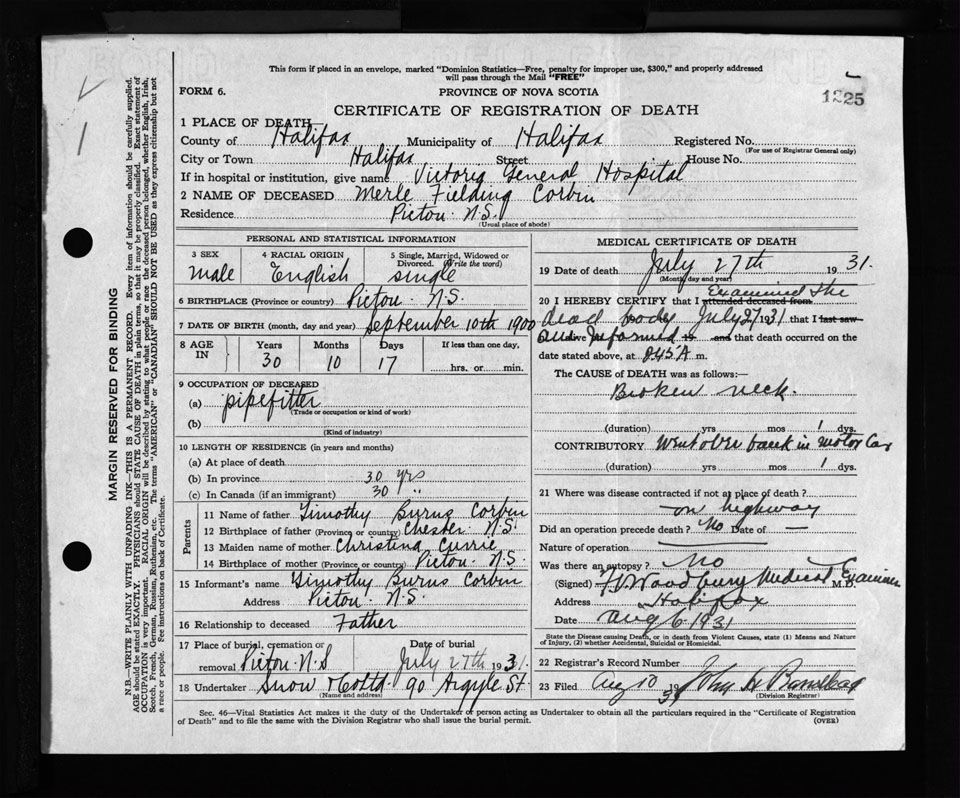 This form if placed in an envelope, marked "Dominion Statistics—Free, penalty for improper use, $300," and properly addressed
will pass through the Mail "FREE"
FORM 6.
PROVINCE OF NOVA SCOTIA
1825
CERTIFICATE OF REGISTRATION OF DEATH
1 PLACE OF DEATH
County of Halifax Municipality of Halifax Registered No.
(For use of Registrar General only)
City or Town Halifax Street House No.
If in hospital or institution, give name Victoria General Hospital
2 NAME OF DECEASED Merle Fielding Corbin
Residence Pictou N.S.
(Usual place of abode)
PERSONAL AND STATISTICAL INFORMATION
3 SEX 4 RACIAL ORIGIN 5 Single, Married, Widowed or Divorced. (Write the word)
male English single
6 BIRTHPLACE (Province or country) Pictou N.S.
7 DATE OF BIRTH (month, day and year) September 10th 1900
8 AGE IN Years Months Days If less than one day,
30 10 17 hrs. or min.
9 OCCUPATION OF DECEASED
(a) pipefitter
(Trade or occupation or kind of work)
(b)
(Kind of industry)
10 LENGTH OF RESIDENCE (in years and months)
(a) At place of death
(b) In province 30 yrs
(c) In Canada (if an immigrant) 30 "
Parents
11 Name of father Timothy Burns Corbin
12 Birthplace of father (Province or country) Chester N.S.
13 Maiden name of mother Christina Currie
14 Birthplace of mother (Province or country) Pictou N.S.
15 Informant's name Timothy Burns Corbin
Address Pictou N.S.
16 Relationship to deceased Father
17 Place of burial, cremation or Date of burial
removal Pictou N.S July 27th 1931.
18 Undertaker Snow & Co Ltd 90 Argyle St
(Name and address)
MEDICAL CERTIFICATE OF DEATH
19 Date of death July 27th 1931.
(Month, day and year)
20 I HEREBY CERTIFY that I attended deceased from Examined the
dead body July 27 1931 that I last saw
and Informed alive and that death occurred on the
date stated above, at 845A m.
The CAUSE of DEATH was as follows:—
Broken neck.
(duration) yrs mos 1 dys.
CONTRIBUTORY Went over bank in Motor Car
(duration) yrs mos 1 dys.
21 Where was disease contracted if not at place of death?
on highway
Did an operation precede death? No Date of —
Nature of operation
Was there an autopsy? No
(Signed) Woodbury Medical Examiner M.D.
Address Halifax
Date Aug 6 1931
State the Disease causing Death, or in death from Violent Causes, state (1) Means and Nature
of Injury, (2) whether Accidental, Suicidal or Homicidal.
22 Registrar's Record Number
23 Filed Aug 10 1931 John
(Division Registrar)
Sec. 46—Vital Statistics Act makes it the duty of the Undertaker or person acting as Undertaker to obtain all the particulars required in the "Certificate of Registration
of Death" and to file the same with the Division Registrar who shall issue the burial permit.
(OVER)
MARGIN RESERVED FOR BINDING
N.B.—WRITE PLAINLY WITH UNFADING INK—THIS IS A PERMANENT RECORD. Every item of information should be carefully supplied.
AGE should be stated EXACTLY. PHYSICIANS should STATE CAUSE OF DEATH in plain terms, so that it may be properly classified. Exact statement of
OCCUPATION is very important. RACIAL ORIGIN will be described by stating to what people or race the deceased person belonged, whether English, Irish,
Scotch, French, German, Russian, Ruthenian, etc. The terms "AMERICAN" or "CANADIAN" SHOULD NOT BE USED as they express citizenship but not
a race or people. See instructions on back of Certificate.